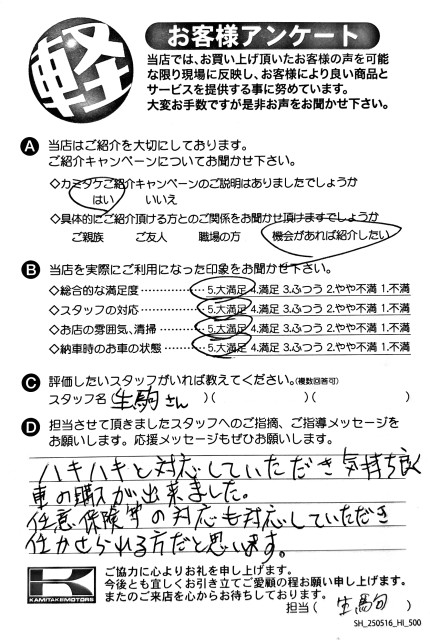 軽
お客様アンケート
当店では、お買い上げ頂いたお客様の声を可能
な限り現場に反映し、お客様により良い商品と
サービスを提供する事に努めています。
大変お手数ですが是非お声をお聞かせ下さい。
A 当店はご紹介を大切にしております。
ご紹介キャンペーンについてお聞かせ下さい。
◇カミタケご紹介キャンペーンのご説明はありましたでしょうか
はい いいえ
◇具体的にご紹介頂ける方とのご関係をお聞かせ頂けますでしょうか
ご親族 ご友人 職場の方 機会があれば紹介したい
B 当店を実際にご利用になった印象をお聞かせ下さい。
◇総合的な満足度……………5.大満足 4.満足 3.ふつう 2.やや不満 1.不満
◇スタッフの対応……………5.大満足 4.満足 3.ふつう 2.やや不満 1.不満
◇お店の雰囲気、清掃………5.大満足 4.満足 3.ふつう 2.やや不満 1.不満
◇納車時のお車の状態………5.大満足 4.満足 3.ふつう 2.やや不満 1.不満
C 評価したいスタッフがいれば教えてください。(複数回答可)
スタッフ名(生駒さん )( )( )
D 担当させて頂きましたスタッフへのご指摘、ご指導メッセージを
お願いします。応援メッセージもぜひお願いします。
ハキハキと対応していただき気持ち良く
車の購入が出来ました。
任意保険等の対応も対応していただき
任かせられる方だと思います。
ご協力に心よりお礼を申し上げます。
今後とも宜しくお引き立てご愛顧の程お願い申し上げます。
またのご来店を心からお待ちしております。
KAMITAKEMOTORS
担当( 生駒 )
SH_250516_HI_500